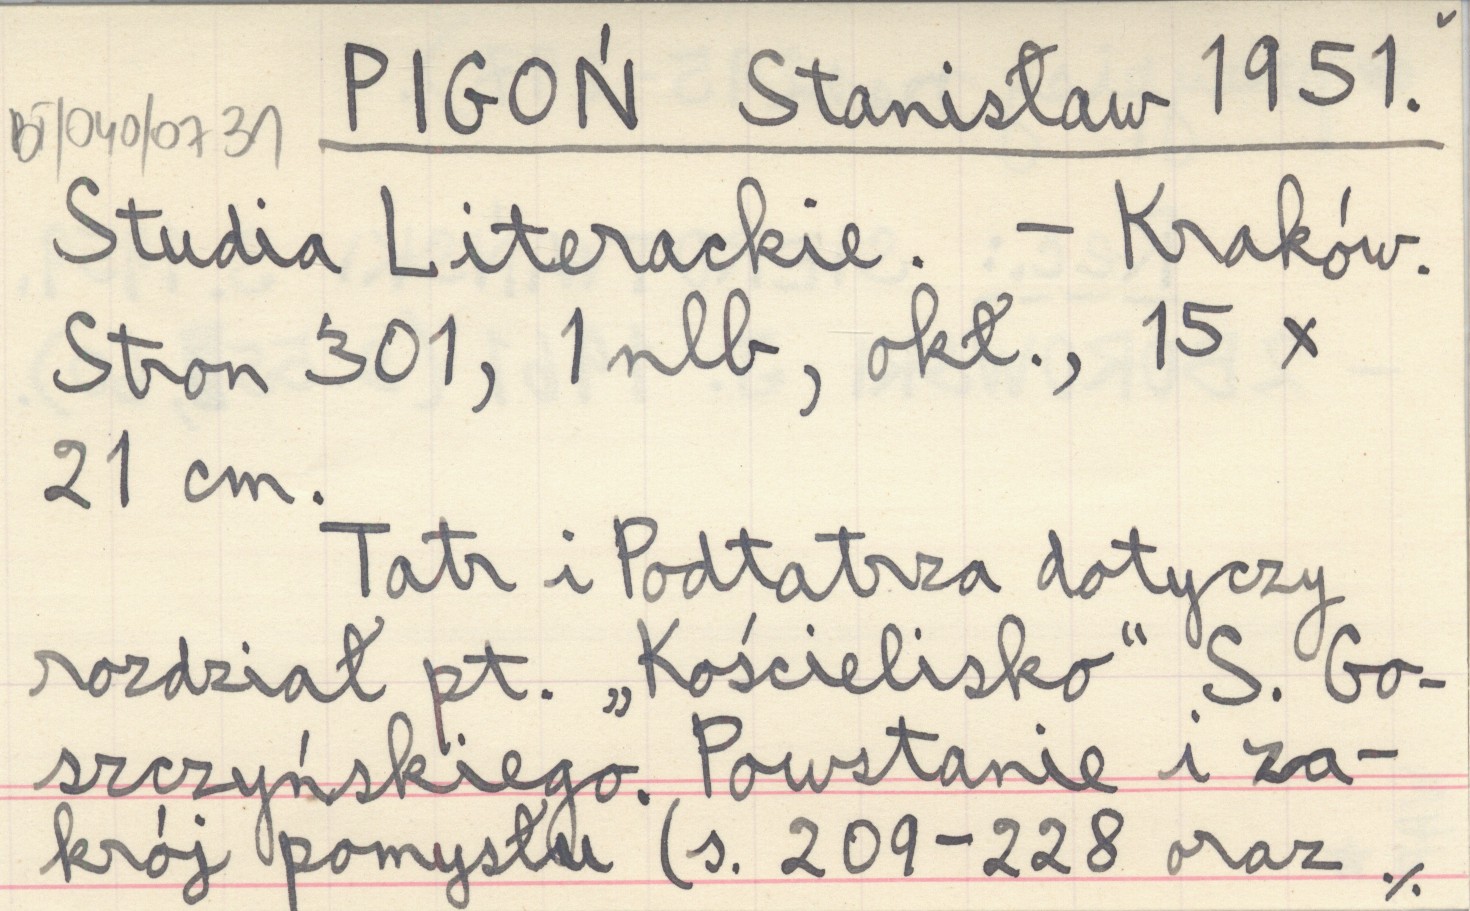 PIGOŃ Stanisław 1951.
BT/040/0731
Studia Literackie. – Kraków.
Stron 301, 1 nlb, okł., 15 x
21 cm.
Tatr i Podtatrza dotyczy
rozdział pt. „Kościelisko“ S. Go-
szczyńskiego. Powstanie i za-
krój pomysłu (s. 209-228 oraz ./.